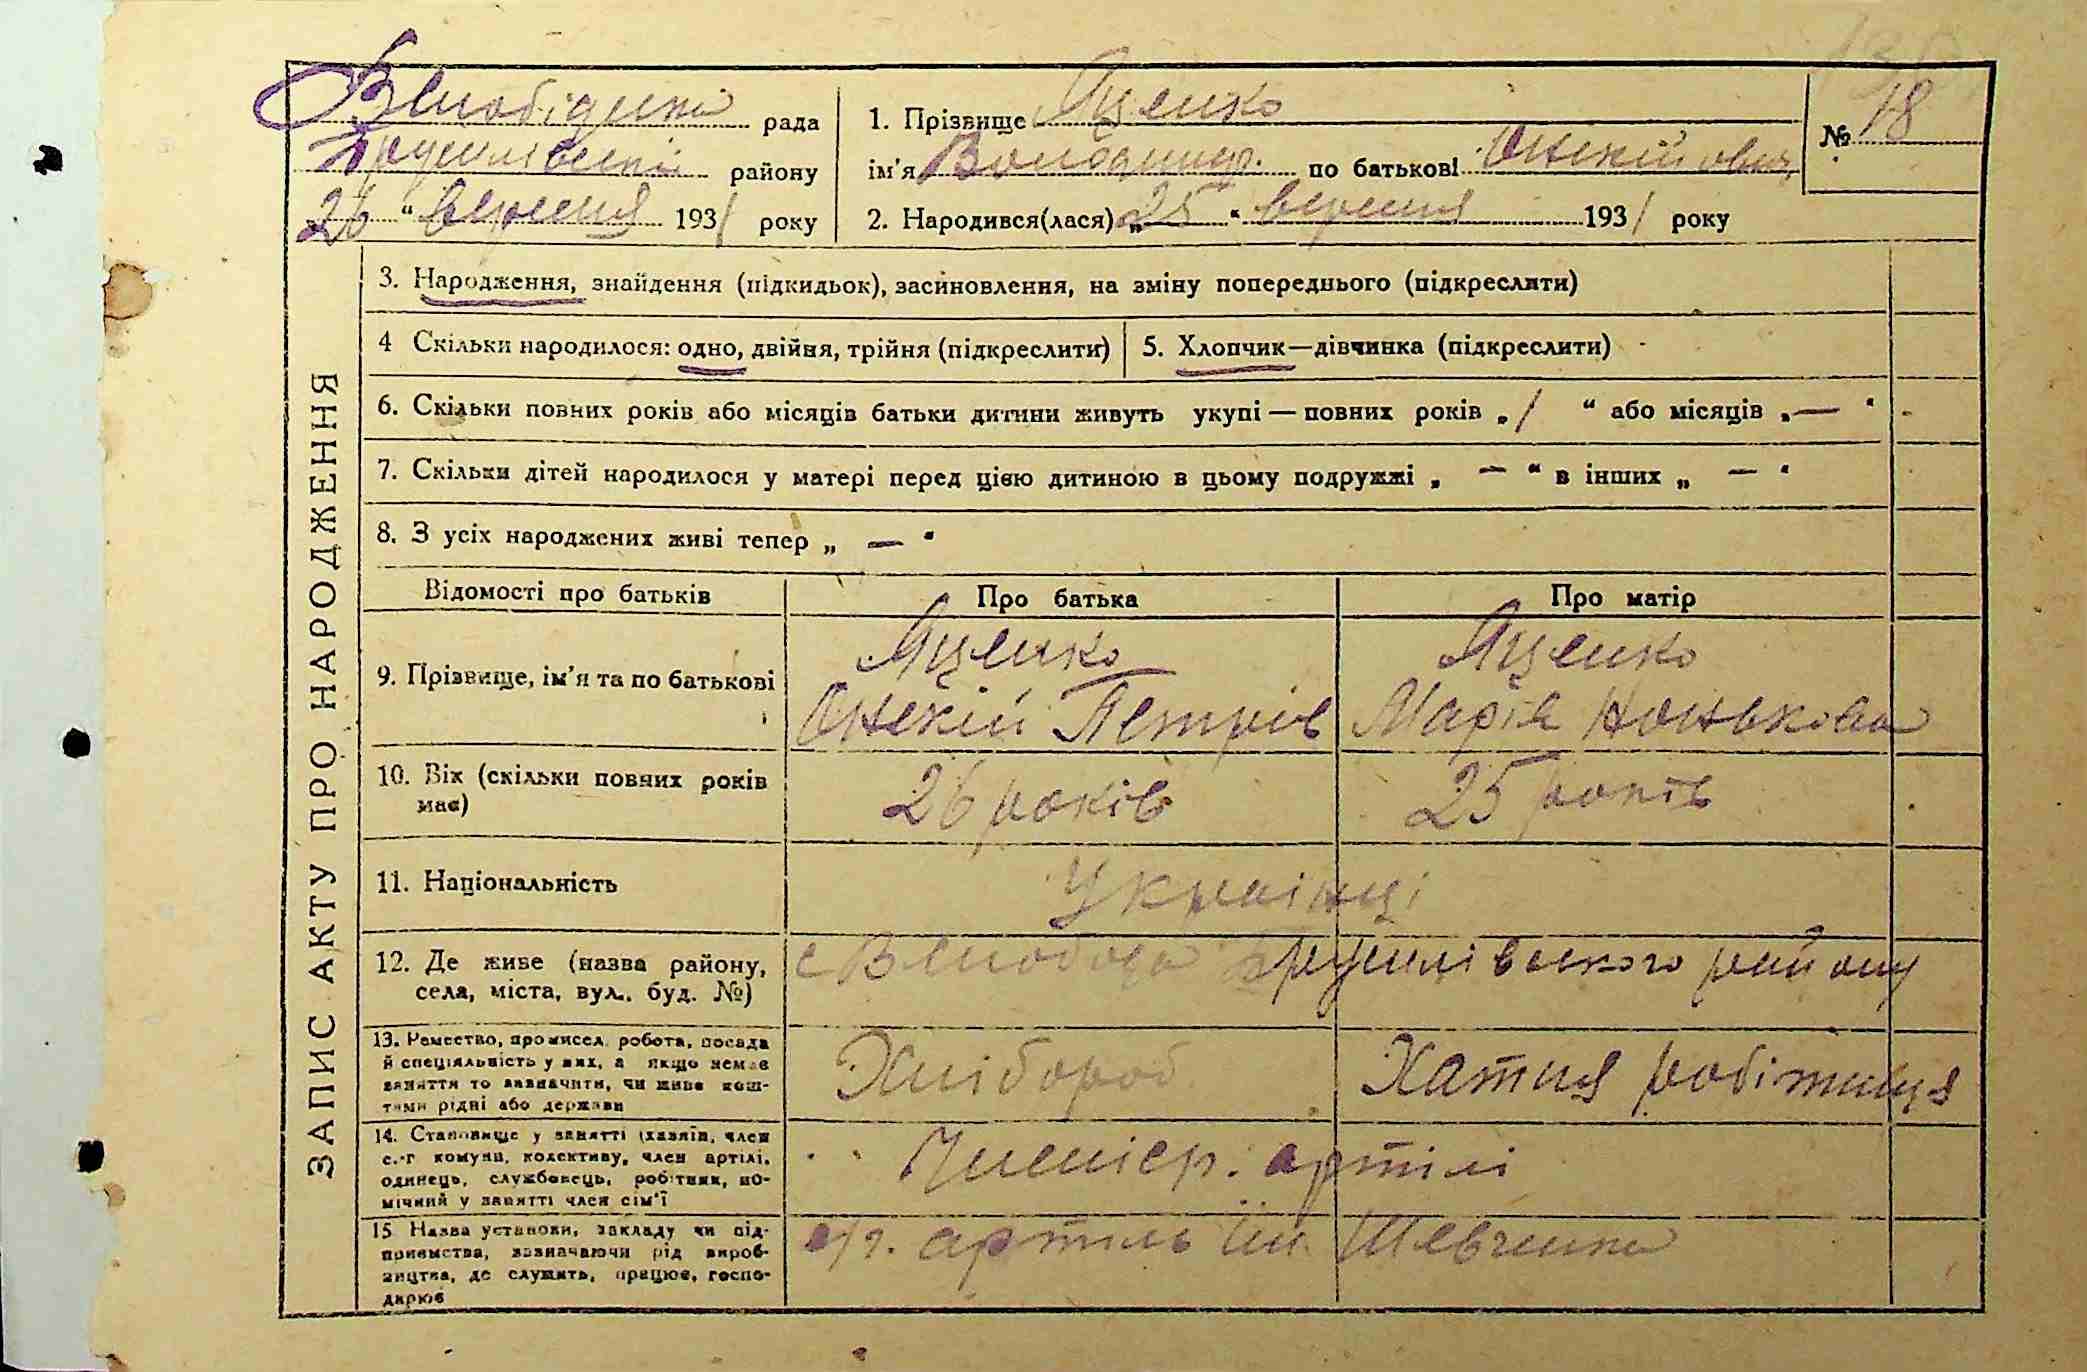 рада
району
26 " вересня 1931 року
1. Прізвище Яценко
ім'я Володимир. по батькові Онекійович
2. Народився(лася) „25 " вересня 1931 року
№ 18
ЗАПИС АКТУ ПРО НАРОДЖЕННЯ
3. Народження, знайдення (підкидьок), засиновлення, на зміну попереднього (підкреслити)
4 Скільки народилося: одно, двійня, трійня (підкреслити)
5. Хлопчик—дівчинка (підкреслити)
6. Скільки повних років або місяців батьки дитини живуть укупі — повних років „ 1 " або місяців „ — "
7. Скільки дітей народилося у матері перед цією дитиною в цьому подружжі „ — " в інших „ — "
8. З усіх народжених живі тепер „ — "
Відомості про батьків
Про батька
Про матір
9. Прізвище, ім'я та по батькові
Яценко
Онекій Петрів
Яценко
Марія
10. Вік (скільки повних років
має)
26 років
25 років
11. Національність
Українці
12. Де живе (назва району,
села, міста, вул., буд. №)
с Вслобода Брусилівського району
13. Ремество, промисел, робота, посада
й спеціяльність у них, а якщо немає
заняття то зазначити, чи живе кош-
тами рідні або держави
Хлібороб
Хатня робітниця
14. Становище у занятті (хазяїн, член
с.-г комуни, колективу, член артілі,
одинець, службовець, робітник, по-
мічний у занятті член сім'ї
Члени с/г. артілі
15 Назва установи, закладу чи під-
приємства, зазначаючи рід вироб-
ництва, де служить, працює, госпо-
дарює
с/г. артіль ім. Шевченка